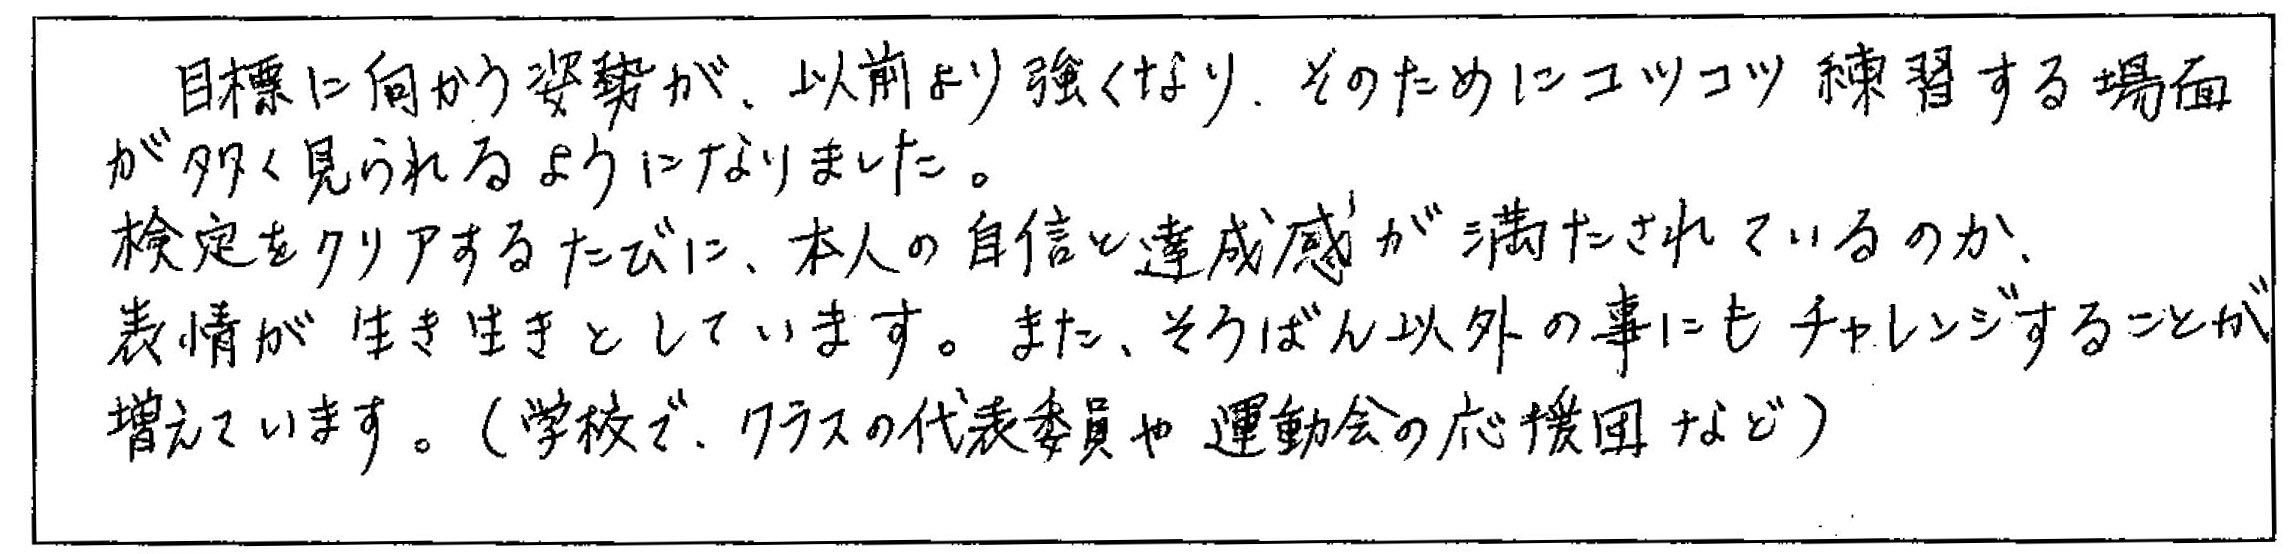 目標に向かう姿勢が、以前より強くなり、そのためにコツコツ練習する場面
が多く見られるようになりました。
検定をクリアするたびに、本人の自信と達成感が満たされているのか、
表情が生き生きとしています。また、そろばん以外の事にもチャレンジすることが
増えています。(学校で、クラスの代表委員や運動会の応援団など)